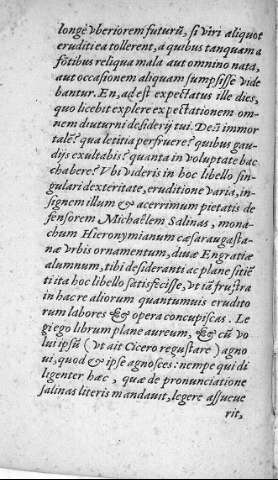 longè vberiorem futurũ, si viri aliquot
eruditi ea tollerent, a quibus tanquam a
fõtibus reliqua mala aut omnino nata,
aut occasionem aliquam sumpsisse vide
bantur. En, ad est expectatus ille dies,
quo licebit explere expectationem om-
nem diuturni desiderij tui. Deũ immor
talẽ? qua letitia perfruere? quibus gau-
dijs exultabis? quanta in voluptate bac
chabere? Vbi videris in hoc libello sin-
gulari dexteritate, eruditione varia, in-
signem illum & acerrimum pietatis de
fensorem Michaëlem Salinas, mona-
chum Hieronymianum cæsaraugusta-
næ vrbis ornamentum, diuæ Engratiæ
alumnum, tibi desideranti ac plane sitiẽ
ti ita hoc libello satisfecisse, vt iã frustra
in hac re aliorum quantumuis erudito
rum labores & opera concupiscas. Le
gi ego librum plane aureum, & cũ vo
lui ipsũ (vt ait Cicero regustare) agno
ui, quod & ipse agnosces: nempe qui di
ligenter hæc, quæ de pronunciatione
salinas literis mandauit, legere assueue
rit,